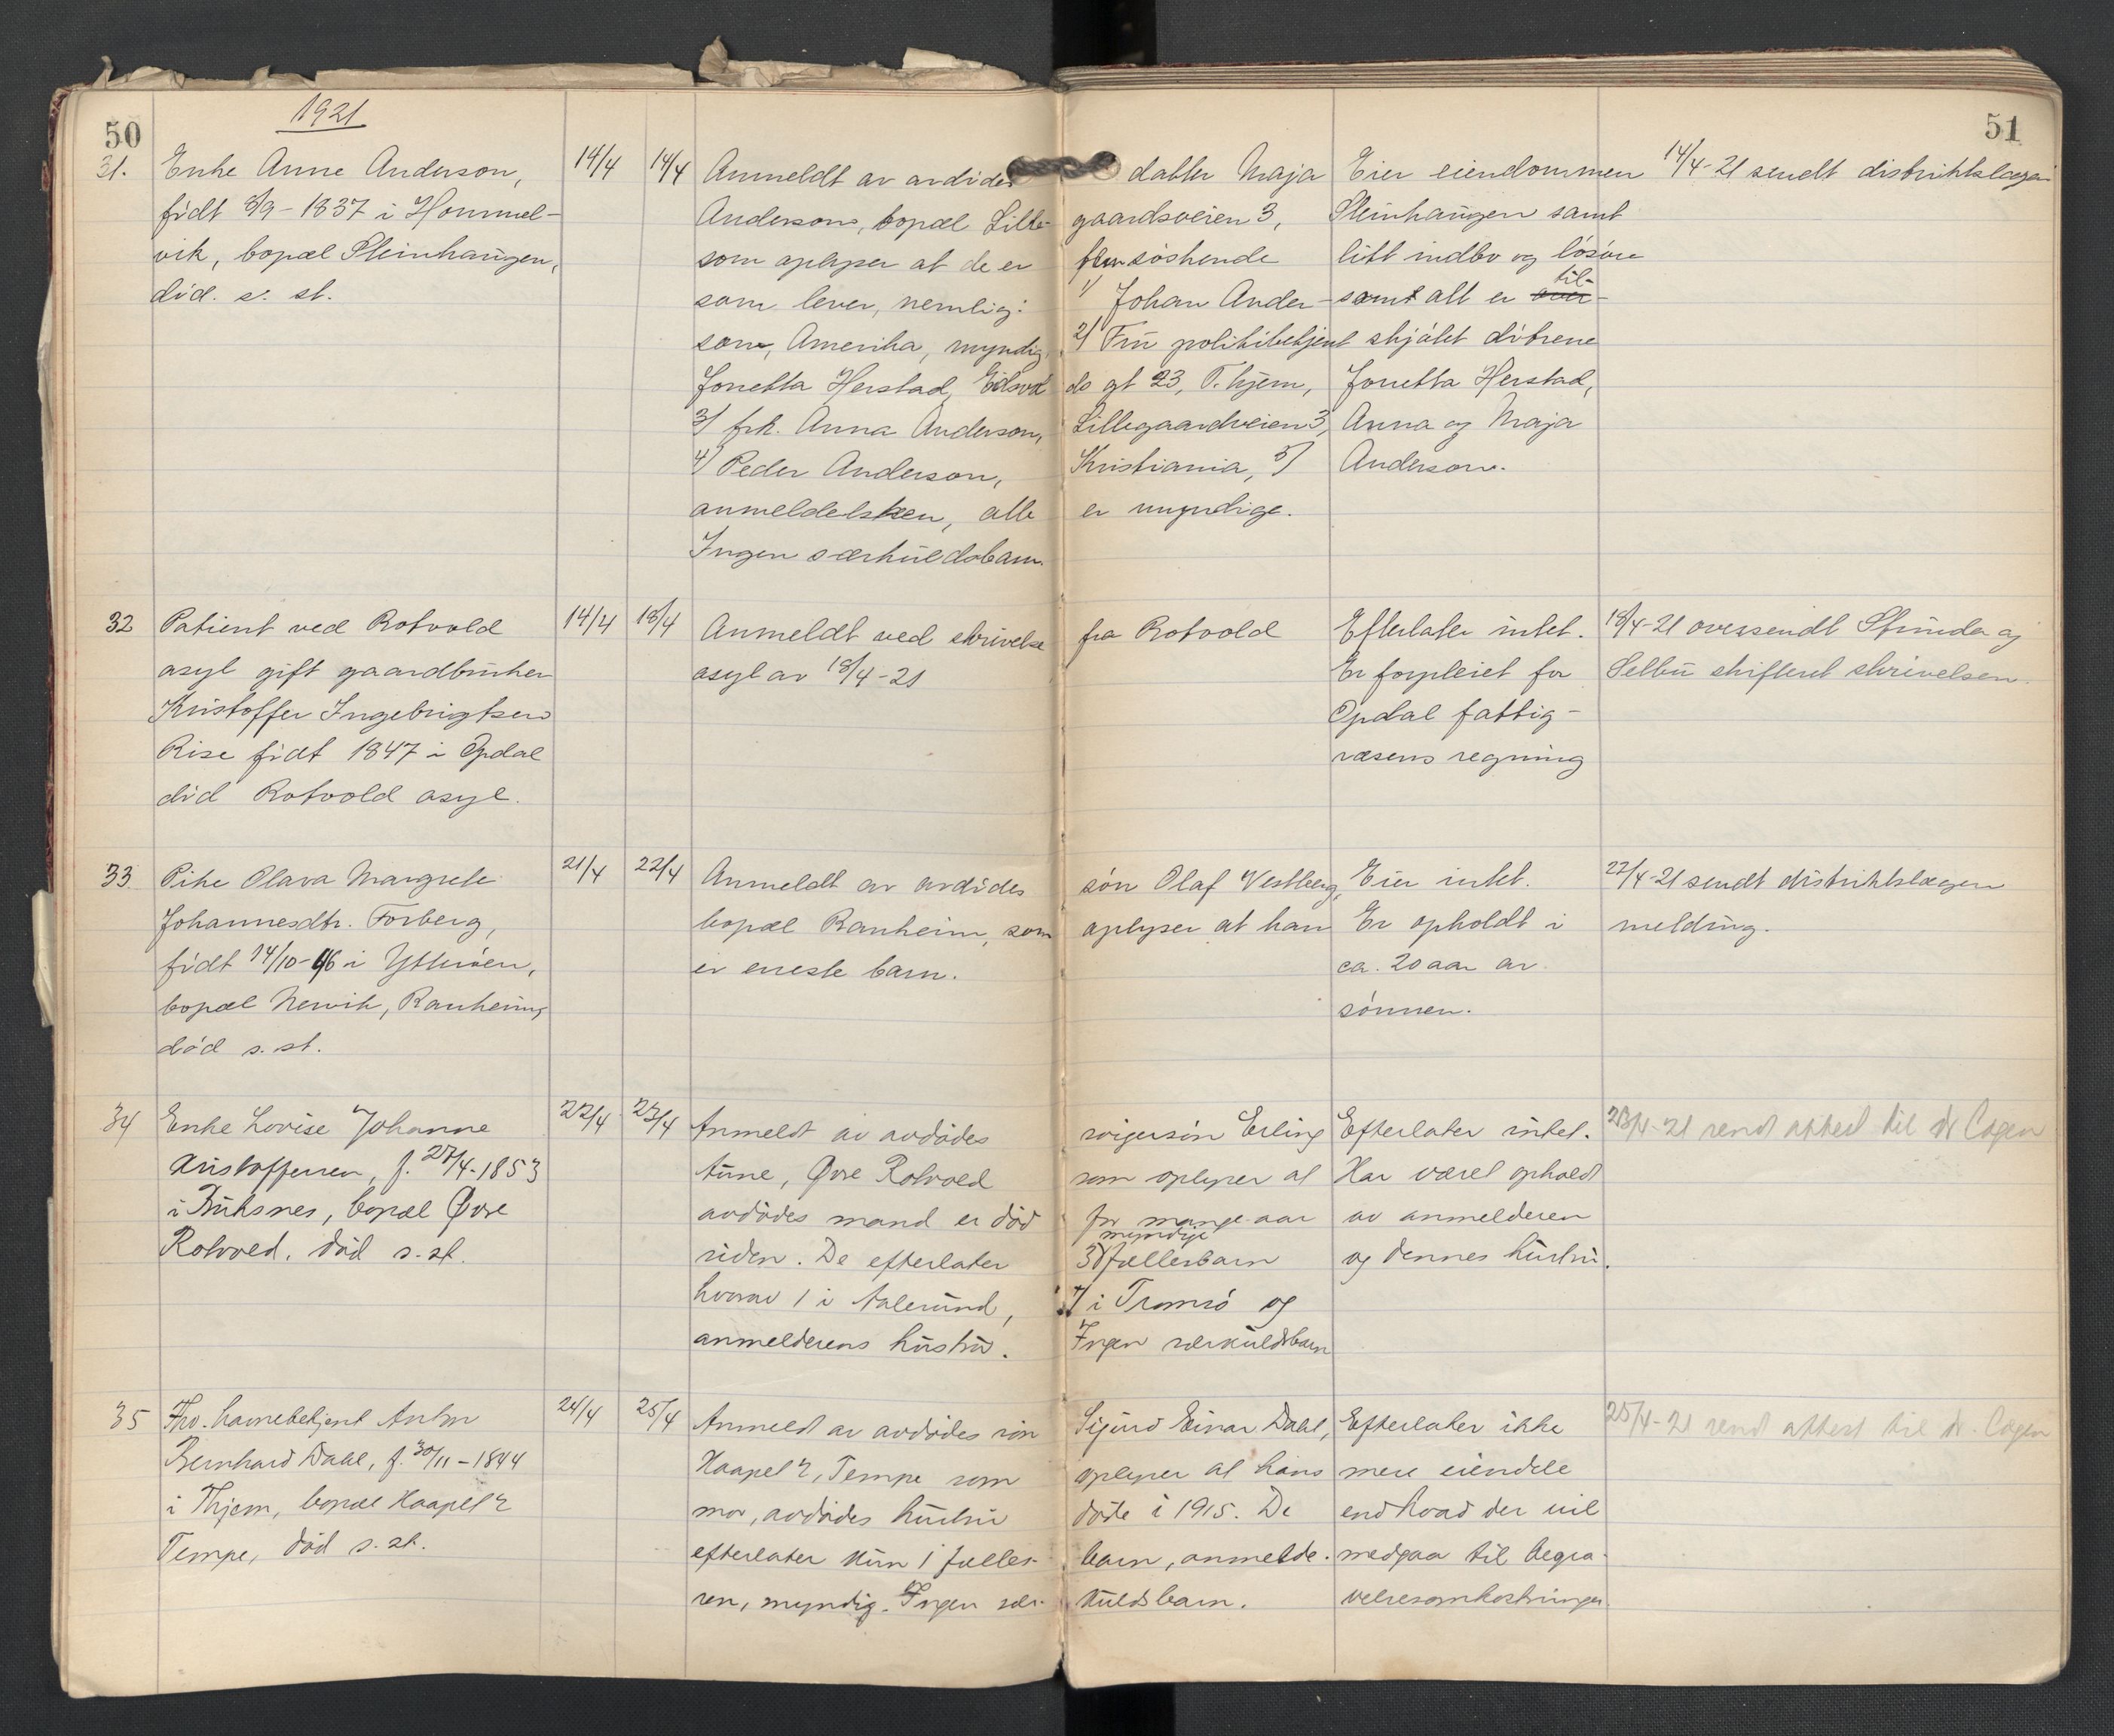 50
1921
51
31. Enke Anne Anderson, 14/4 14/4 Anmeldt av avdødes datter Maja Eier eiendommen 14/4-21 sendt distriktslægen
født 8/9-1837 i Hommel- Anderson, bopæl Lille- gaardsveien 3, Steinhaugen samt
vik, bopæl Steinhaugen, som oplyser at de er fem søskende litt indbo og løsøre
død. s. st. som lever, nemlig: 1) Johan Ander- samt alt er over- til-
son, Amerika, myndig, 2) Fru politibetjent skjøtet døtrene
Jonetta Herstad, Eidsvolds gt 23, T.hjem, Jonetta Herstad,
3) frk. Anna Anderson, Lillegaardveien 3, Anna og Maja
4) Peder Anderson, Kristiania, 5) Anderson.
anmeldelsken, alle er myndige.
Ingen særkuldsbarn.
32 Patient ved Rotvold 14/4 18/4 Anmeldt ved skrivelse fra Rotvold Efterlater intet. 18/4-21 oversendt Strinda og
asyl gift gaardbruker asyl av 18/4-21 Er forpleiet for Selbu skifteret skrivelsen.
Kristoffer Ingebrigtsen Opdal fattig-
Rise født 1847 i Opdal væsens regning
død Rotvold asyl.
33 Pike Olava Margrete 21/4 22/4 Anmeldt av avdødes søn Olaf Vestberg, Eier intet. 22/4-21 sendt distriktslægen
Johannesdtr. Forberg, bopæl Ranheim, som oplyser at han Er opholdt i melding.
født 14/10-46 i Ytterøen, er eneste barn. ca. 20 aar av
bopæl Nervik, Ranheim, sønnen.
død s. st.
34 Enke Lovise Johanne 22/4 23/4 Anmeldt av avdødes svigersøn Erling Efterlater intet. 23/4-21 sendt attest til dr Cogen
Kristoffersen, f. 27/4-1853 Aune, Øvre Rotvold som oplyser at Har været opholdt
i Buksnes, bopæl Øvre avdødes mand er død for mange aar av anmelderen
Rotvold. død s. st. siden. De efterlater 3 myndige fællesbarn og dennes hustru.
hvorav 1 i Aalesund, 1 i Tromsø og
anmelderens hustru. Ingen særkuldsbarn
35 Fhv. havnebetjent Anton 24/4 25/4 Anmeldt av avdødes søn Sigurd Einar Dahl, Efterlater ikke 25/4-21 sendt attest til dr. Cogen
Bernhard Dahl, f. 30/11-1844 Haapet 2, Tempe som oplyser at hans mere eiendele
i Thjem, bopæl Haapet 2 mor, avdødes hustru døde i 1915. De end hvad der vil
Tempe, død s. st. efterlater kun 1 fælles- barn, anmelde- medgaa til begra-
ren, myndig. Ingen sær- kuldsbarn. velsesomkostninger.